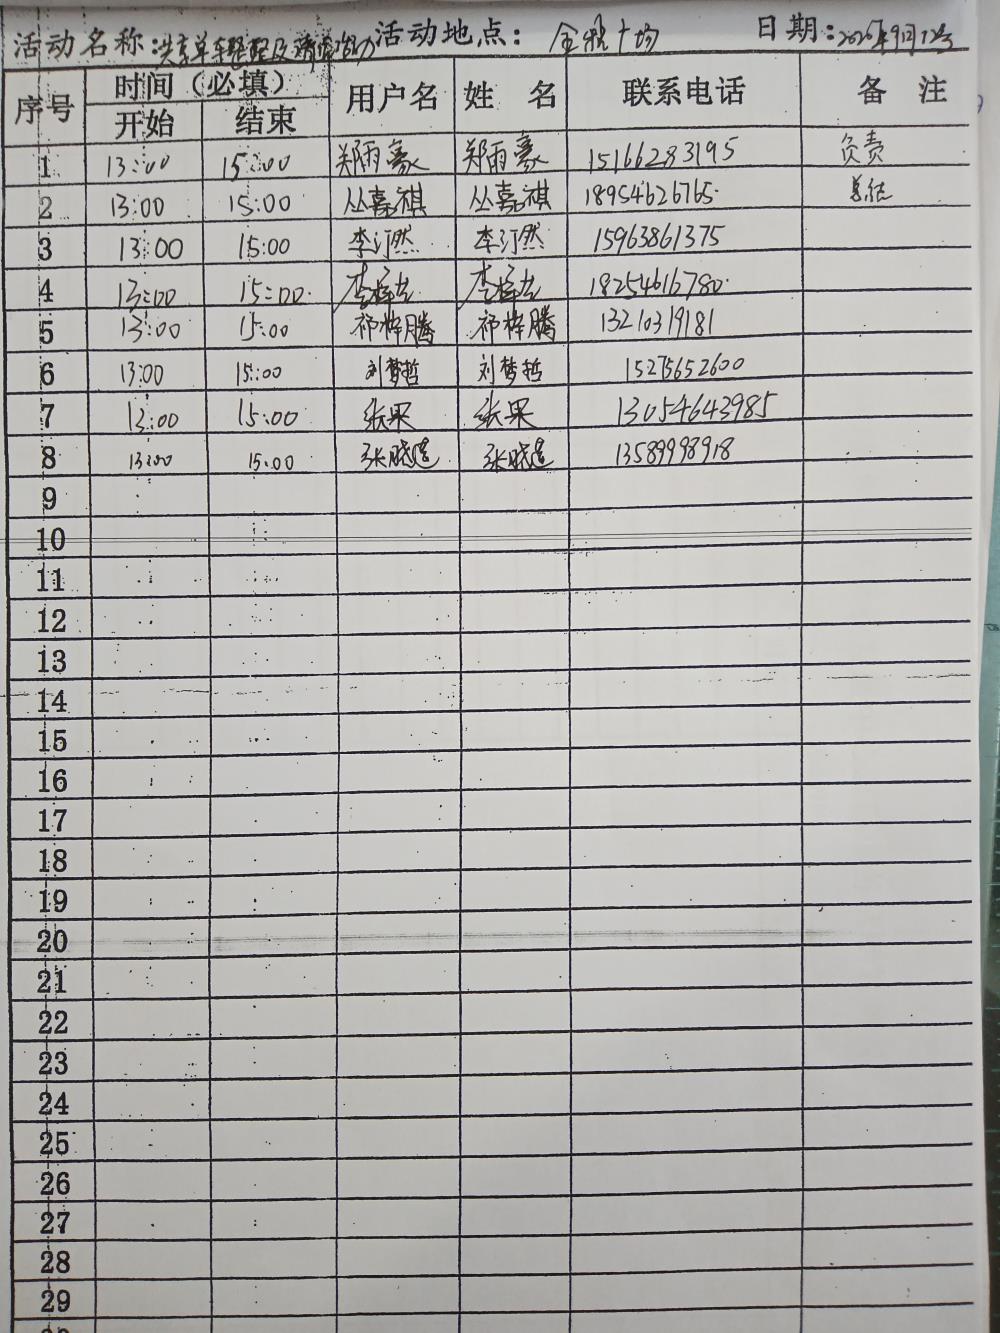 活动名称:共享单车整理及清洁活动 活动地点: 金税广场 日期:2020年9月12号
序号 时间（必填） 用户名 姓 名 联系电话 备 注
开始 结束
1 13:00 15:00 郑雨豪 郑雨豪 15166283195 负责
2 13:00 15:00 丛嘉祺 丛嘉祺 18954626765 总结
3 13:00 15:00 李汀然 李汀然 15963861375
4 13:00 15:00 18254616780
5 13:00 15:00 祁梓腾 祁梓腾 13210319181
6 13:00 15:00 刘梦哲 刘梦哲 15275652600
7 13:00 15:00 张果 张果 13054643985
8 13:00 15:00 13589998918
9
10
11
12
13
14
15
16
17
18
19
20
21
22
23
24
25
26
27
28
29